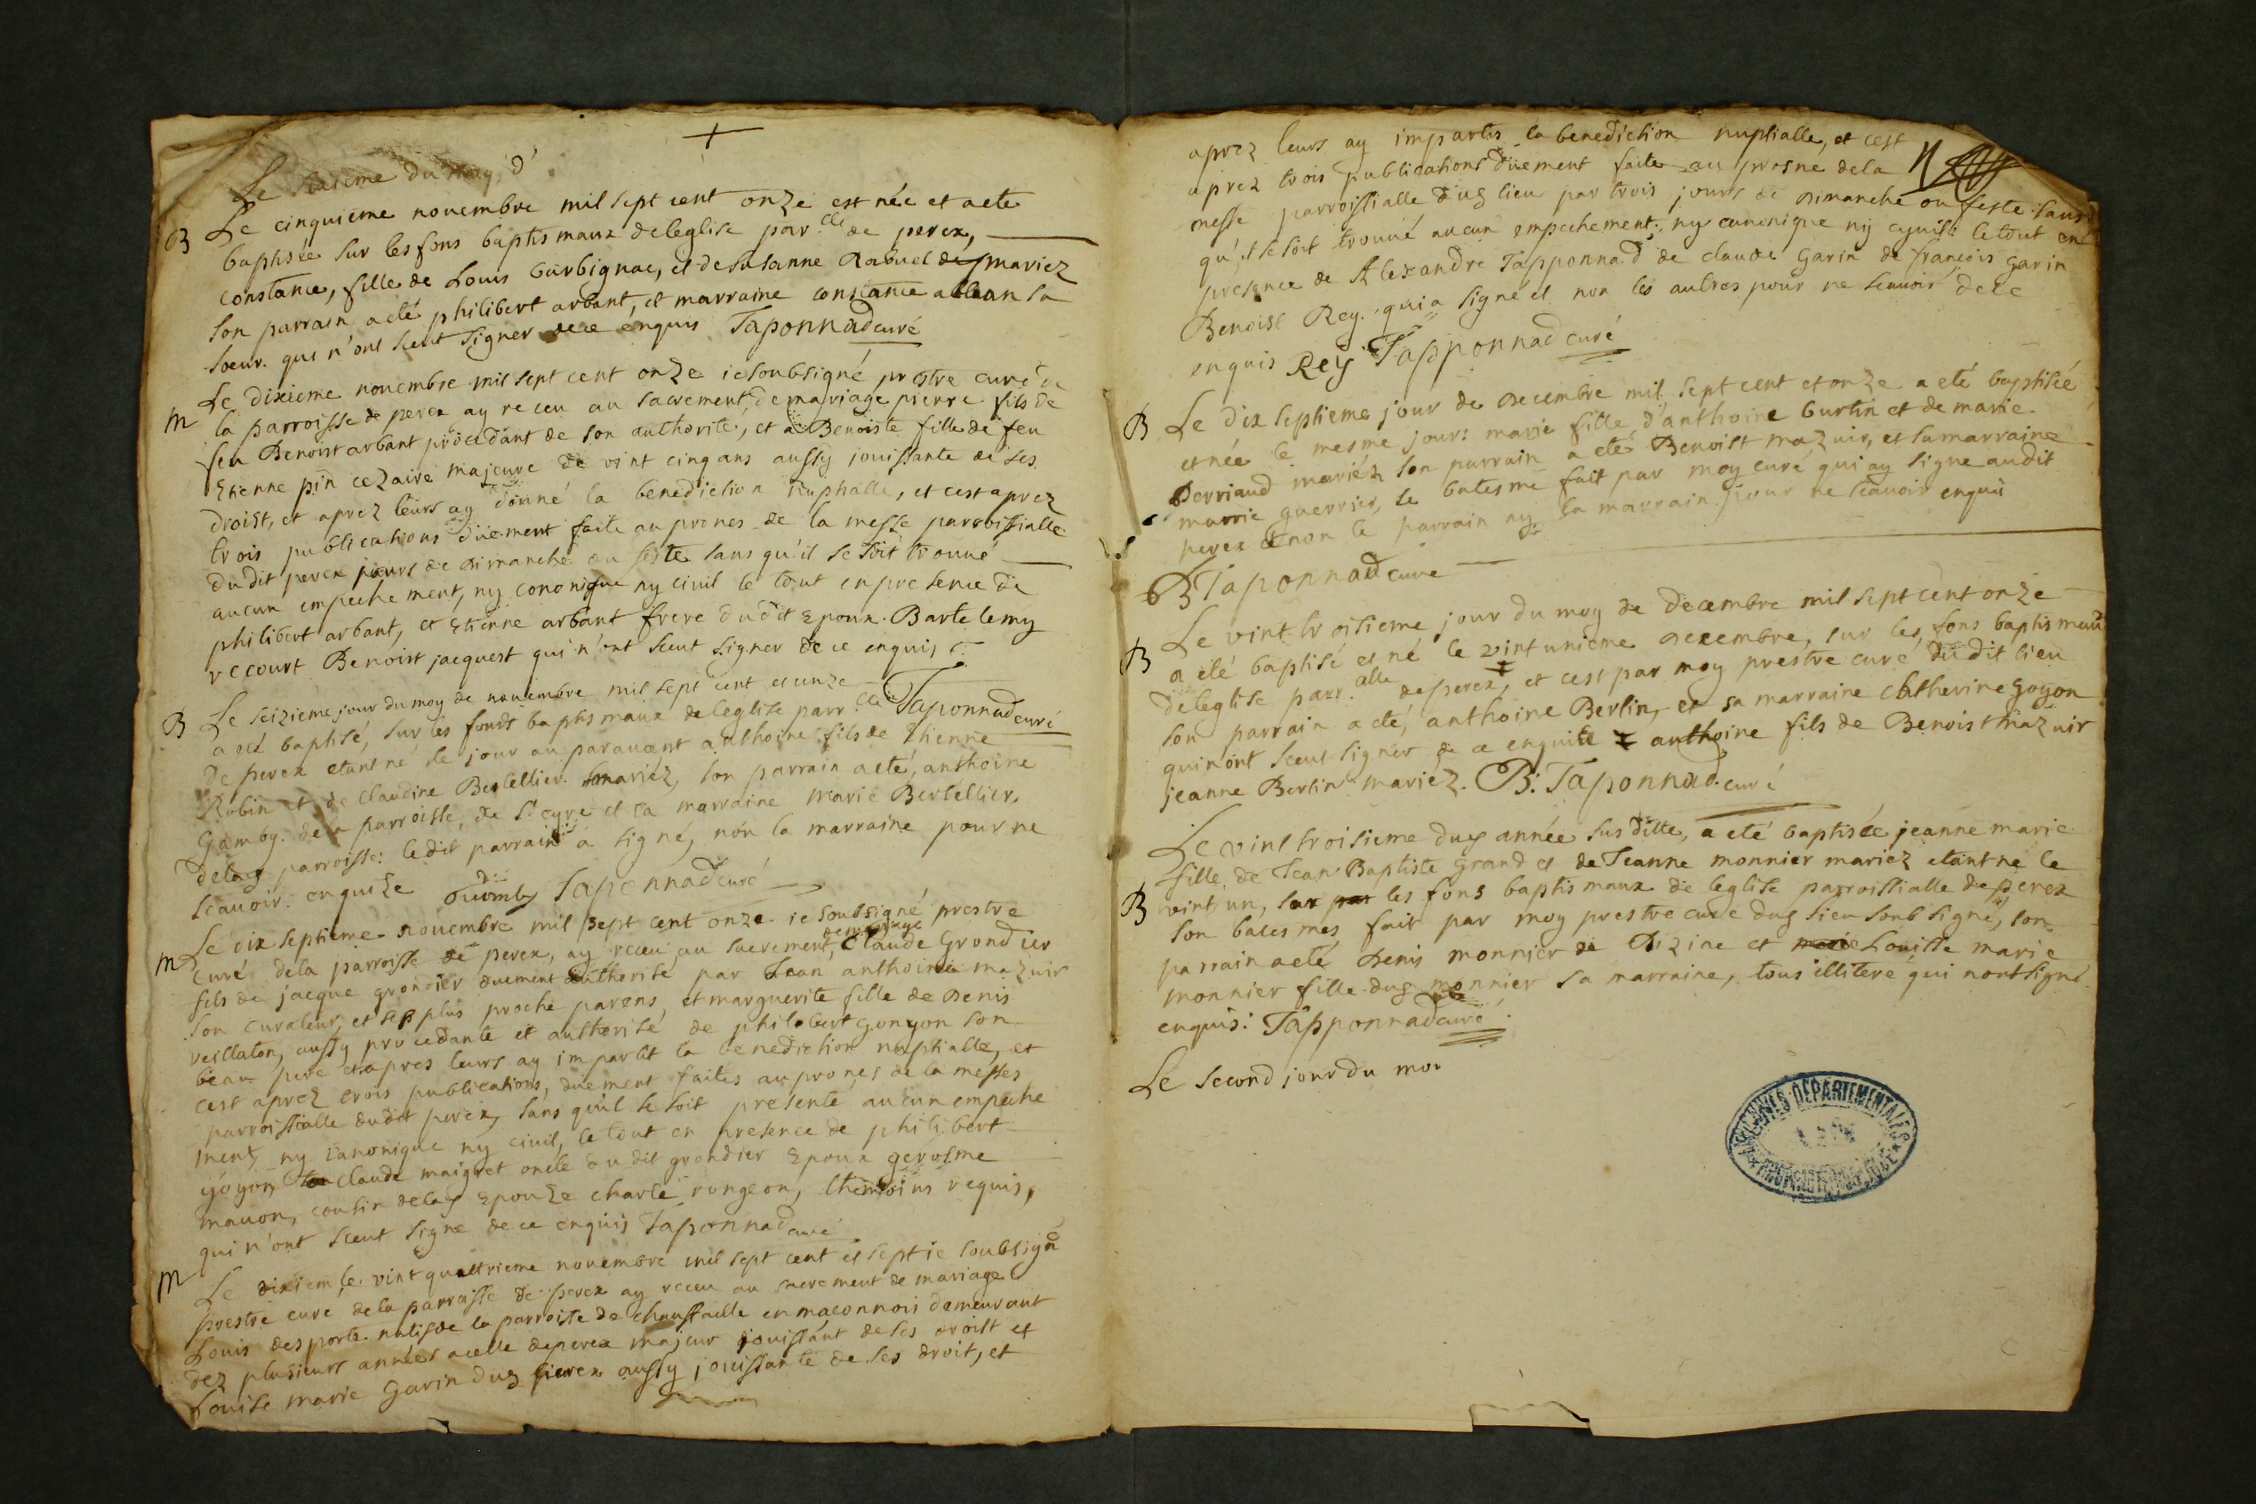 +
Le sixieme du moy d
B Le cinquieme novembre mil sept cent onze est née et a ete
baptisée sur les fons baptismaux de leglise par.elle de perex,
constance, fille de Louis burbignac, et de susanne Rabuel mariez
son parrain a eté philibert arbant, et marraine constance sa
soeur. qui n'ont sceut signer de ce enquis Taponnad curé
Le dixieme novembre mil sept cent onze ie soubsigné prestre curé de
M la parroisse de perex ay receu au sacrement de mariage pierre fils de
feu Benoist arbant procedant de son authorite, et a Benoiste fille de feu
Etienne pin cezaire majeure de vint cinq ans aussy jouissante de ses
droist, et aprez leurs ay donné la benediction nuptialle, et cest aprez
trois publications duement faite au prones de la messe parroissialle
du dit perex jours de dimanche ou feste sans qu'il se soit trouué
aucun empechement, ny cononique ny civil le tout en presence de
philibert arbant, et Etienne arbant frere du dit Epoux. Bartelemy
recourt Benoist jacquest qui n'ont sceut signer de ce enquis
Taponnad curé
B Le seizieme jour du moy de nouembre mil sept cent et onze
a eté baptisé, sur les fonds baptismaux de leglise parr.elle
de perex etant né le jour au parauant anthoine fils de Etienne
Robin et de Claudine Bertellier mariéz, son parrain a eté, anthoine
Gamby. de la parroisse, de St cyre et sa marraine marie Bertellier.
delad parroisse: ledit parrain a signé, non la marraine pour ne
scauoir. enquize Taponnad curé
Le dix septieme novembre mil sept cent onze ie soubsigné prestre
M curé dela parroisse de perex, ay receu au sacrement, de mariage Claude Grondier
fils de jacque grondier duement authorité par Jean anthoine mazuir
son curateur, et ses plus proche parens, et marguerite fille de Denis
veillaton, aussy procedante et authorisé de philibert gonyon son
beau pere et apres leurs ay impartit la benediction nuptialle, et
cest aprez trois publications, duement faites au prones de la messes
parroissialle dudit perex, sans qu'il se soit presenté aucun empeche
ment, ny canonique ny civil, le tout en presence de philibert
goyon, Claude maigret oncle du dit grondier Epoux gerosme
mauon, cousin delad Epouze charle rongeon, themoins requis,
qui n'ont sceut signe de ce enquis Taponnad curé
M Le dixiem le vint quattrieme novembre mil sept cent et sept ie soubsigné
prestre curé dela parroisse de perex ay receu au sacrement de mariage
Louis desporte natif de la parroisse de chauffaille en maconnois demeurant
dez plusieurs années a celle de perex majeur jouissant de ses droist et
Louise marie Garin dud perex aussy jouissante de ses droit, et
aprez leurs ay impartis la benediction nuptialle, et cest
aprez trois publications duement faite au prosne dela
messe parroissialle dud lieu par trois jours de dimanche ou feste sans
qu'il se soit trouué aucun empechement, ny canonique ny ciuil: le tout en
presence de Alexandre Tapponnad de claude Garin de françois Garin
Benoist Rey. qui a signé et non les autres pour ne scauoir de ce
enquis Rey Tapponnad curé
B Le dix septieme jour de decembre mil sept cent et onze a eté baptisée
et née le mesme jour: marie fille d'anthoine Gurtin et de marie
Perriaud mariéz son parrain a eté Benoist mazuir, et sa marraine
marrie guerrier, le batesme fait par moy curé qui ay signe audit
perex et non le parrain ny la marrain pour ne scauoir enquis
B Taponnad curé
Le vint troisieme jour du moy de decembre mil sept cent onze
B a eté baptisé et né le vint unieme decembre, sur les fons baptismaux
de leglise parr.alle de perex, et cest par moy prestre curé du dit lieu
son parrain a eté, anthoine Berlin, et sa marraine Catherine goyon
qui n'ont sceut signer de ce enquise anthoine fils de Benoist mazuir
jeanne Berlin mariéz. B: Taponnad. curé
Le vint troisieme dud année susditte, a eté baptisée jeanne marie
fille de Jean Baptiste Grand et de Jeanne monnier mariez etant né le
B vint un, sur les fons baptismaux de leglise parroissialle de perex
son batesmes fait par moy prestre curé dud lieu soubsigné, son
parrain a eté Denis monnier de Dizine et Louisse marie
monnier fille dud monnier sa marraine, tous illitere qui n'ont signé
enquis: Tapponnad curé
Le second jour du moi
ARCHIVES DEPARTEMENTALES